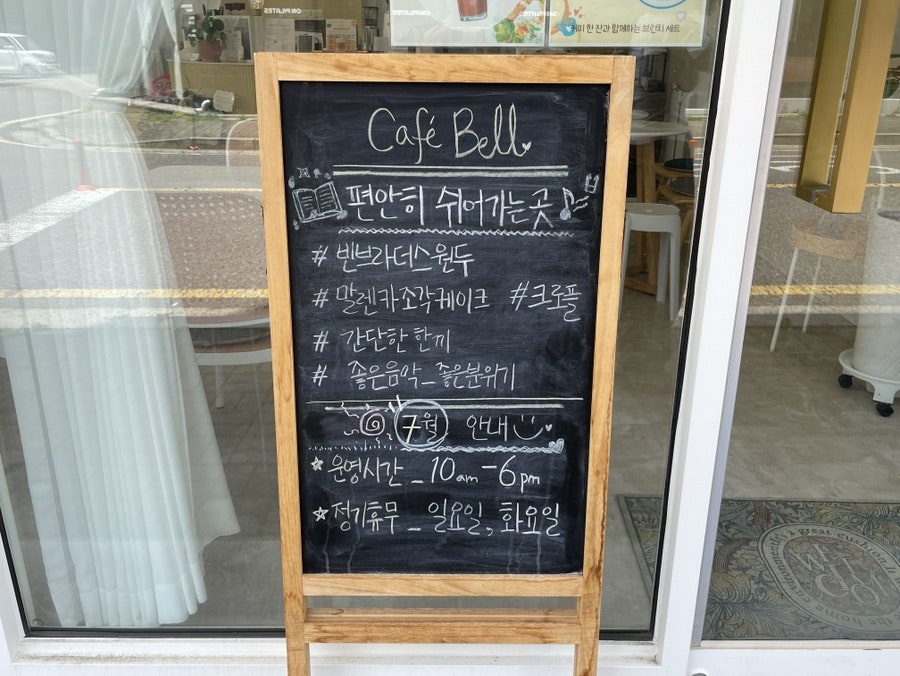 ON PILATES
ON PILATES
커피 한 잔과 함께하는 브런치 세트
Café Bell
편안히 쉬어가는 곳
# 빈브라더스 원두
# 말렌카조각케이크 #크로플
# 간단한 한끼
# 좋은음악_좋은분위기
7월 안내
운영시간 _ 10am - 6pm
정기휴무 _ 일요일, 화요일